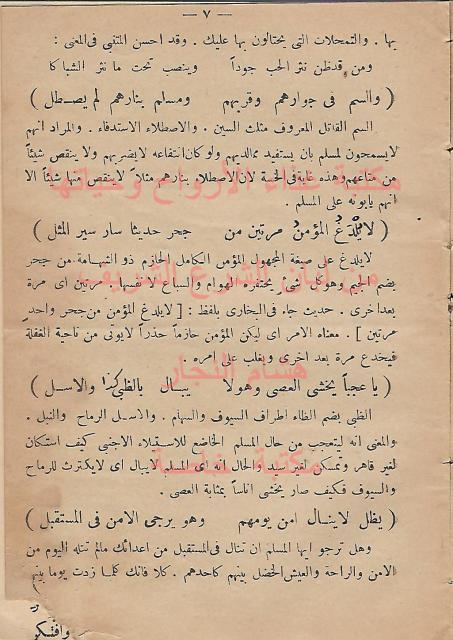 — ٧ —
بها . والتمحلات التى يحتالون بها عليك . وقد احسن المتنبى فى المعنى :
ومن قد ظن نثر الحب جوداً وينصب تحت ما نثر الشباكا
( والسم فى جوارهم وقربهم ومسلم بنارهم لم يصـطل )
السم القاتل المعروف مثلث السين . والاصطلاء الاستدفاء . والمراد انهم
لايسمحون لمسلم بان يستفيد مما لديهم ولو كان انتفاعه لايضرهم ولا ينقص شيئاً
من متاعهم وهذه غاية فى الخسة لان الاصطلاء بنارهم مثلاً لاينقص منها شيئاً الا
انهم يأبونه على المسلم .
( لايُلْدَغُ المؤمنُ مرتين من جحر حديثا سار سير المثل )
لايلدغ على صيغة المجهول المؤمن الكامل الحازم ذو الشهامة من جحر
بضم الجيم وهو كل شىء يحتفره الهوام والسباع لانفسها مرتين اى مرة
بعد اخرى . حديث جاء فى البخارى بلفظ : [ لايلدغ المؤمن من جحر واحد
مرتين ] . معناه الامر اى ليكن المؤمن حازماً حذراً لايوتى من ناحية الغفلة
فيخدع مرة بعد اخرى ويغلب على امره .
( يا عجباً يخشى العصى وهو لا يبـال بالظبى كذا والاسل )
الظبى بضم الظاء اطراف السيوف والسهام . والاسل الرماح والنبل .
والمعنى انه ليتعجب من حال المسلم الخاضع للاستيلاء الاجنبى كيف استكان
لغير قاهر وتمسكن لغير اسد والحال انه اى المسلم لايبال اى لايكترث للرماح
والسيوف فكيف صار يخشى اناساً بمثابة العصى .
( يظل لاينـال امن يومهم وهو يرجى الامن فى المستقبل )
وهل ترجو ايها المسلم ان تنال فى المستقبل من اعدائك مالم تنله اليوم من
الامن والراحة والعيش الخضل بينهم كاحدهم . كلا فانك كلما زدت يوما بينهم
وافتكر
مكتبة غذاء الارواح وحياتها
من لبان الشرع الشريف
هشام النجار
مكتبة خاصة